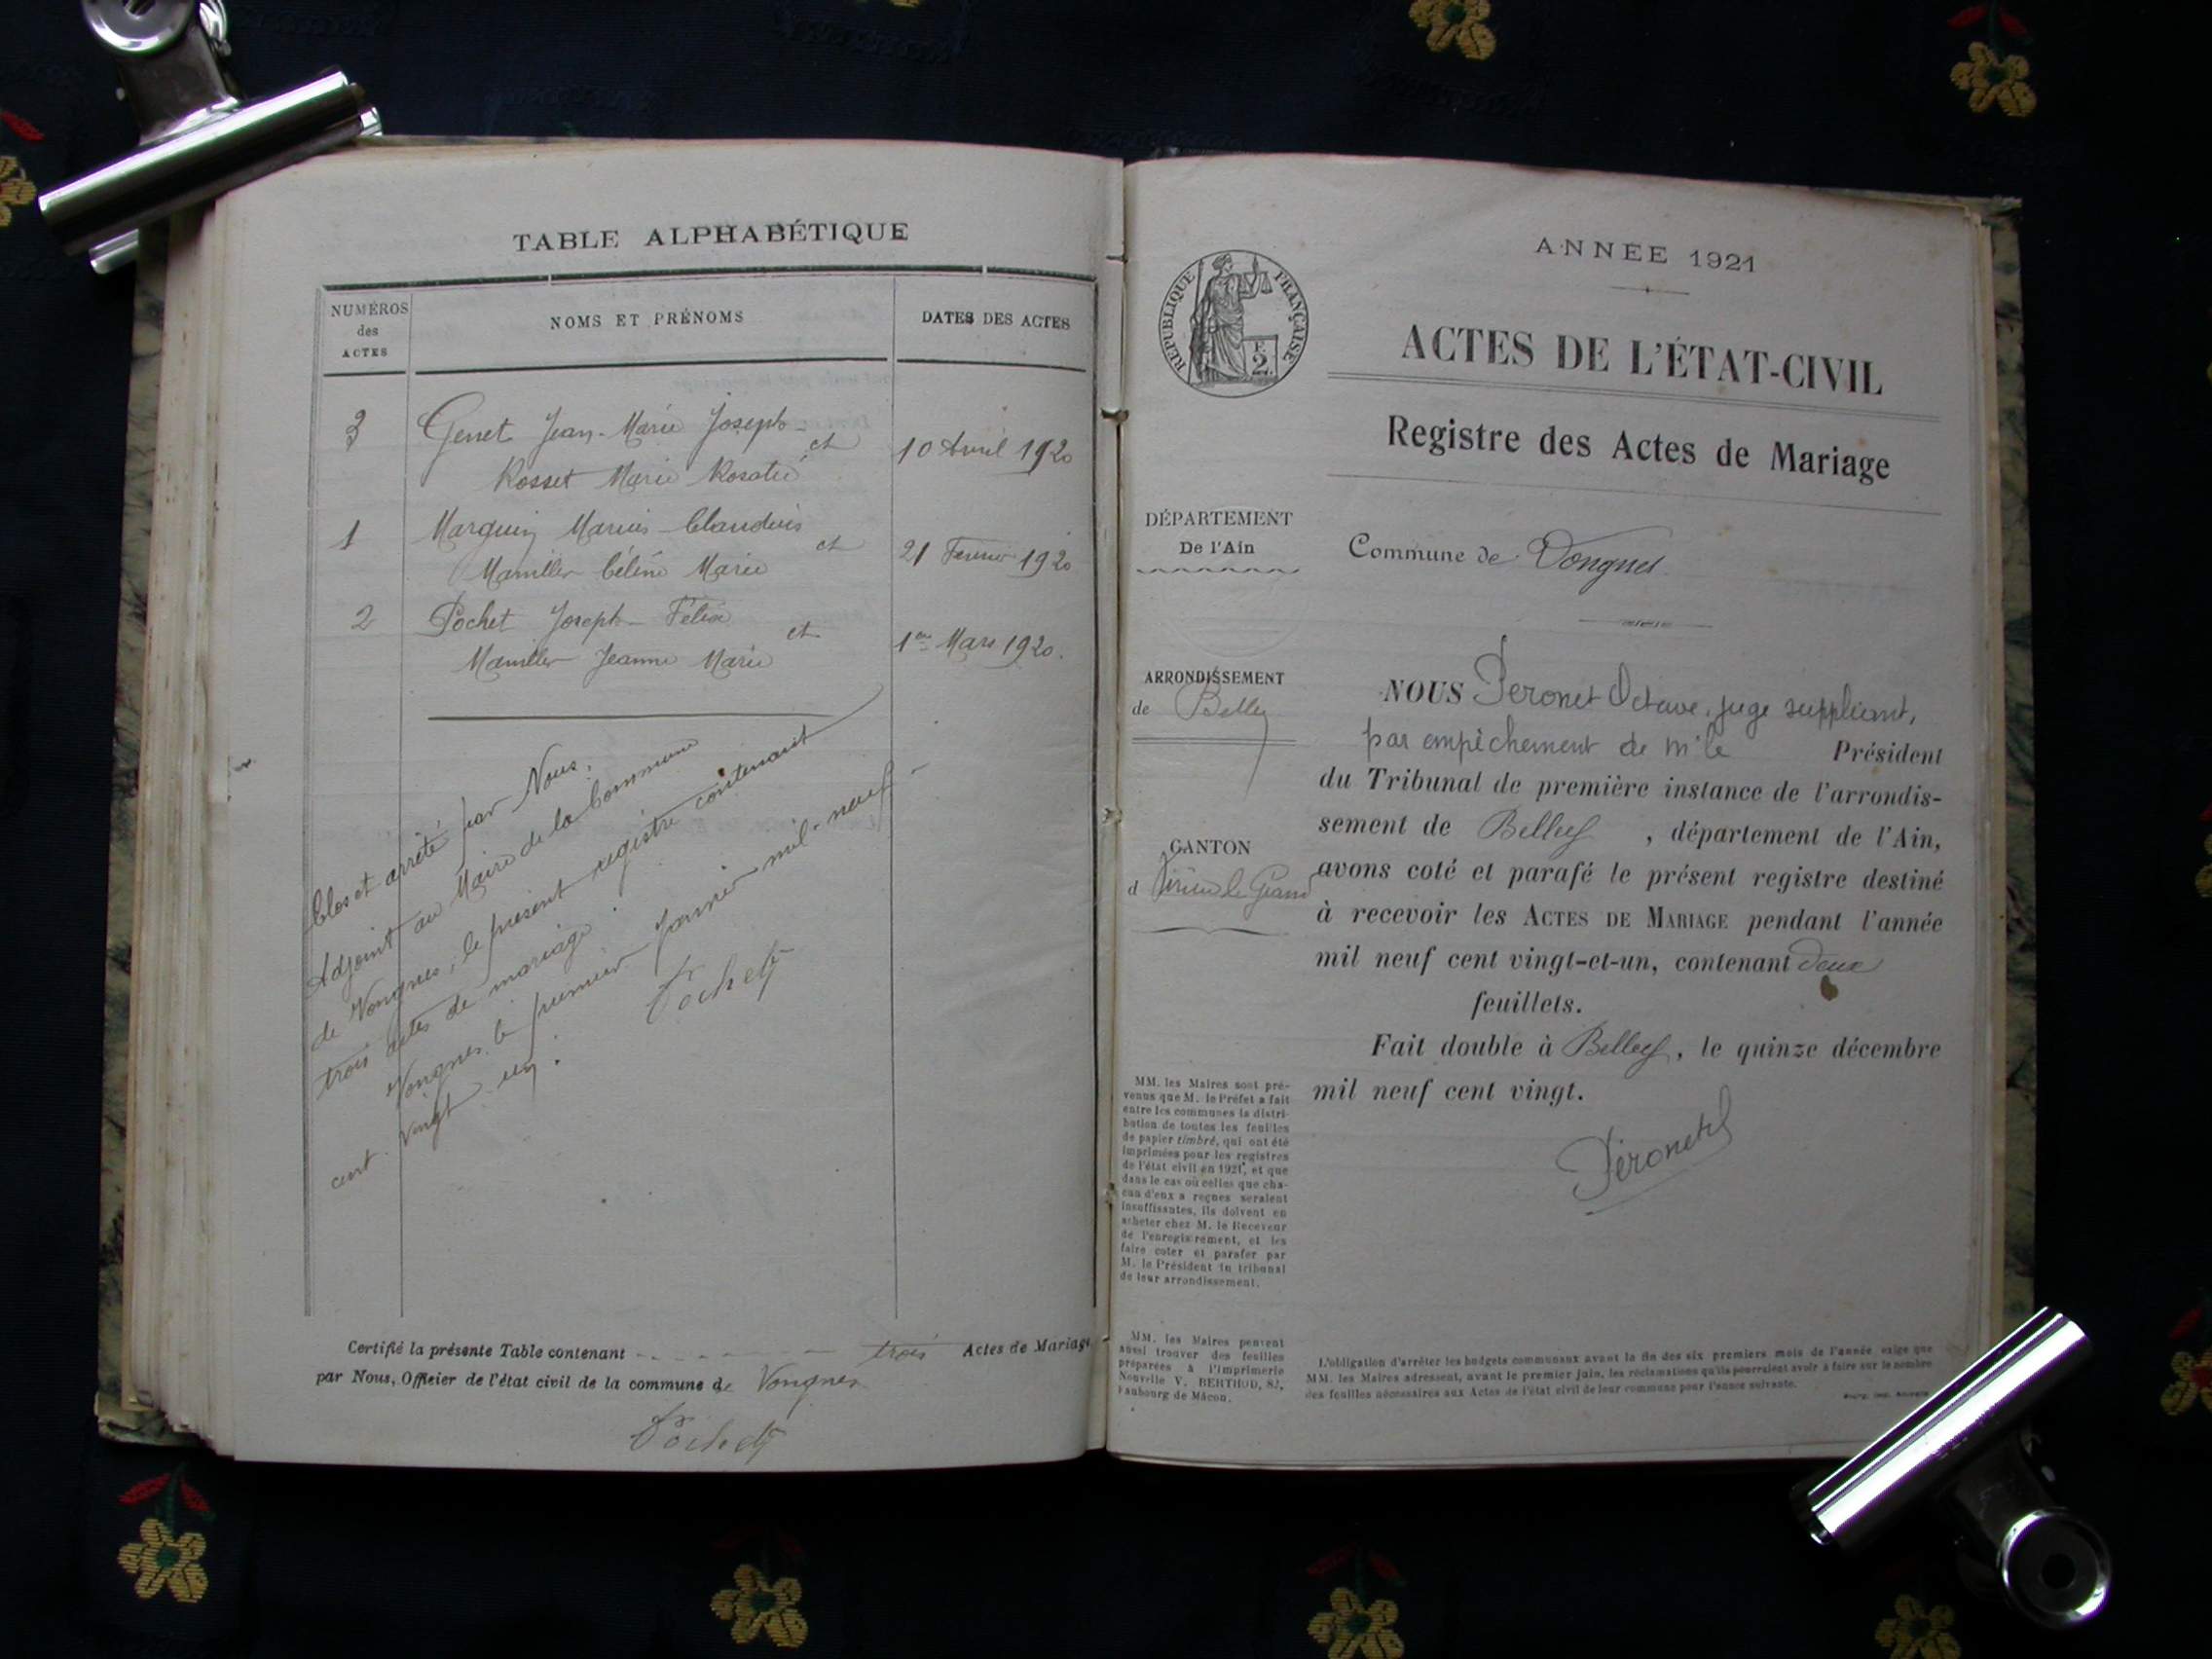 TABLE ALPHABÉTIQUE
NUMÉROS
des
ACTES
NOMS ET PRÉNOMS
DATES DES ACTES
3
Genet Jean-Marie Joseph
et
Rosset Marie Rosalie
10 Avril 1920
1
Marguin Marius Claudius
et
Mamillier Céline Marie
21 Février 1920
2
Pochet Joseph Félix
et
Mamillier Jeanne Marie
1er Mars 1920.
Clos et arrêté par Nous,
Adjoint au Maire de la Commune
de Vongnes, le présent registre contenant
trois actes de mariage.
Vongnes le premier Janvier mil-neuf-
cent vingt un.
Pochet
Certifié la présente Table contenant trois Actes de Mariage
par Nous, Officier de l'état civil de la commune de Vongnes
Pochet
ANNÉE 1921
RÉPUBLIQUE FRANÇAISE
F.
2.
ACTES DE L'ÉTAT-CIVIL
Registre des Actes de Mariage
DÉPARTEMENT
De l'Ain
Commune de Vongnes
ARRONDISSEMENT
de Belley
CANTON
d Virieu le Grand
NOUS Peronet Octave, juge suppléant,
par empêchement de Mr le Président
du Tribunal de première instance de l'arrondis-
sement de Belley, département de l'Ain,
avons coté et parafé le présent registre destiné
à recevoir les ACTES DE MARIAGE pendant l'année
mil neuf cent vingt-et-un, contenant deux
feuillets.
Fait double à Belley, le quinze décembre
mil neuf cent vingt.
Péronet
MM. les Maires sont pré-
venus que M. le Préfet a fait
entre les communes la distri-
bution de toutes les feuilles
de papier timbré, qui ont été
imprimées pour les registres
de l'état civil en 1921, et que
dans le cas où celles que cha-
cun d'eux a reçues seraient
insuffisantes, ils doivent en
acheter chez M. le Receveur
de l'enregistrement, et les
faire coter et parafer par
M. le Président du tribunal
de leur arrondissement.
MM. les Maires peuvent
aussi trouver des feuilles
préparées à l'Imprimerie
Nouvelle V. BERTHOD, 82,
Faubourg de Mâcon.
L'obligation d'arrêter les budgets communaux avant la fin des six premiers mois de l'année exige que
MM. les Maires adressent, avant le premier juin, les réclamations qu'ils pourraient avoir à faire sur le nombre
des feuilles nécessaires aux Actes de l'état civil de leur commune pour l'année suivante.